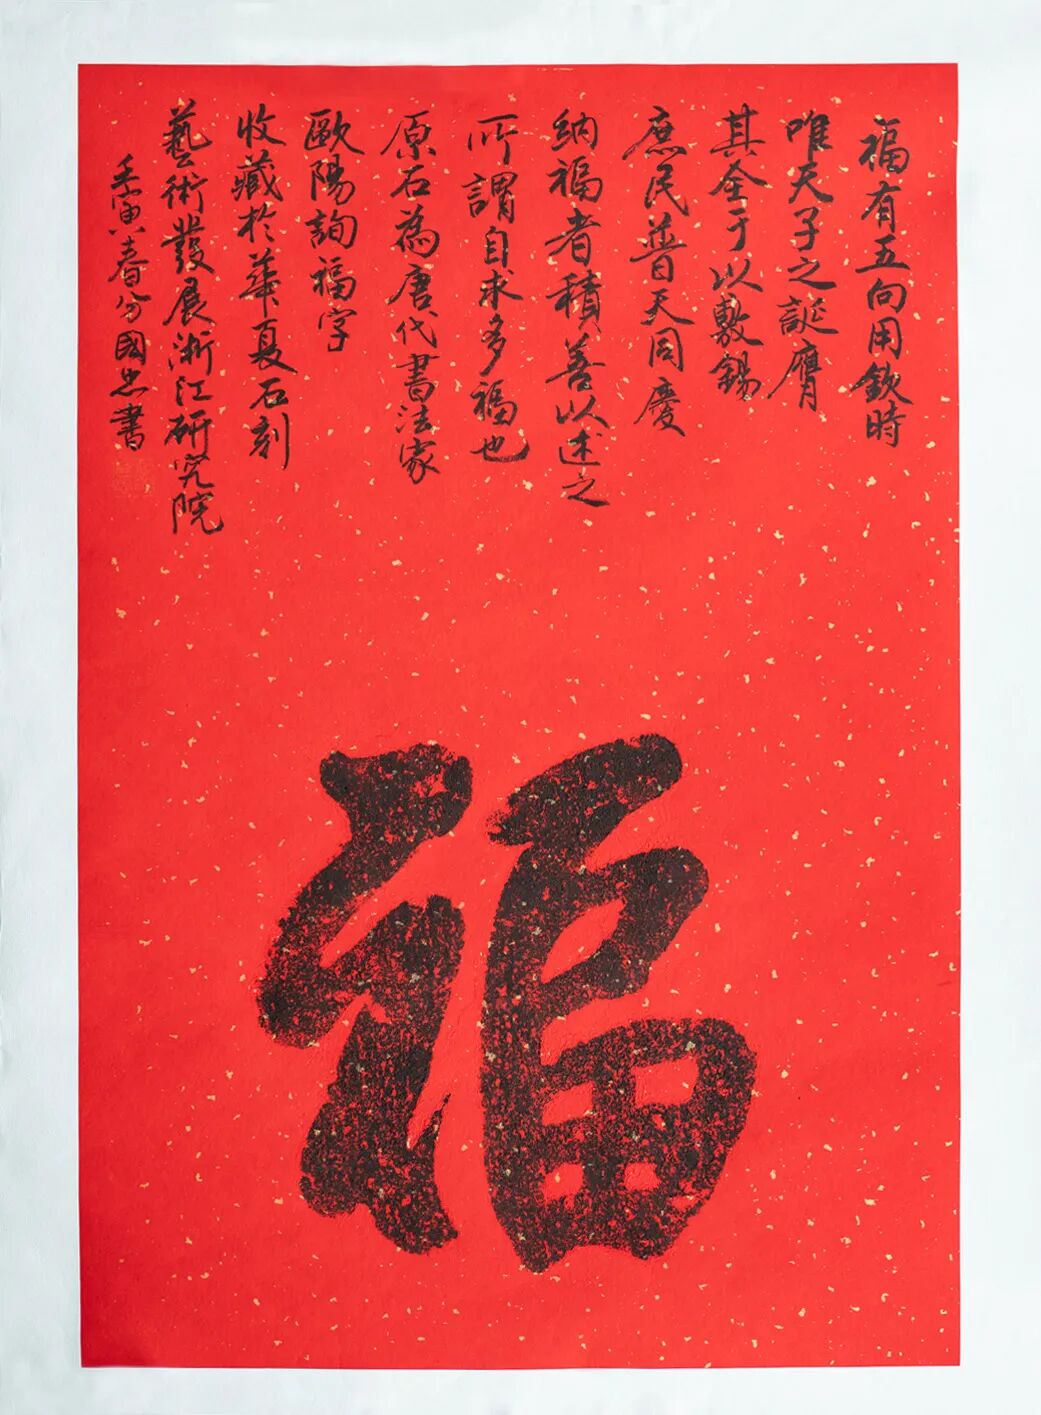 福有五向用欽時
唯天子之誕膺
其全于以敷錫
庶民普天同慶
納福者積善以述之
所謂自求多福也
原石為唐代書法家
歐陽詢福字
收藏於華夏石刻
藝術發展浙江研究院
壬寅春分國忠書
福